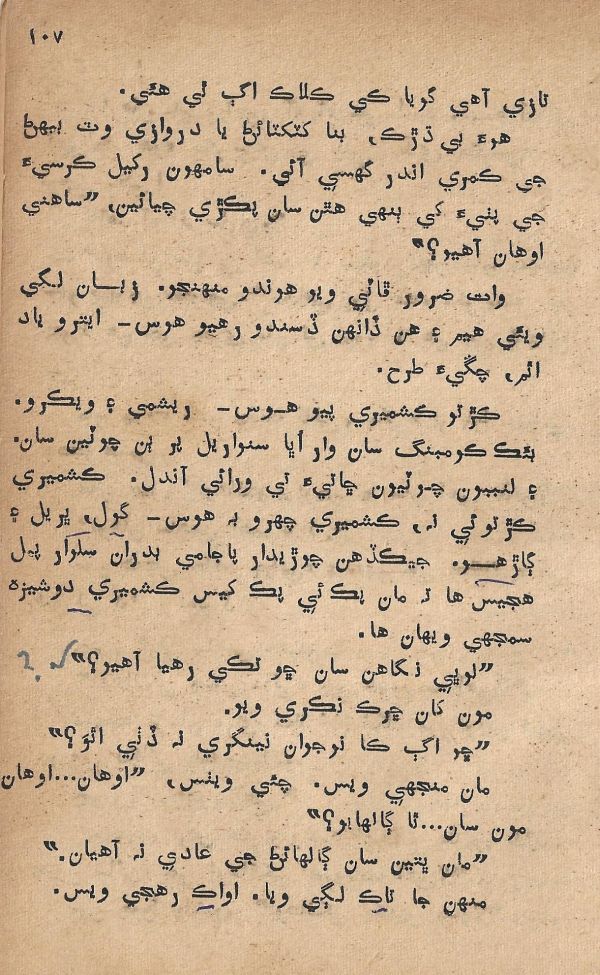 ١٠٧
تازي آهي گويا ڪي ڪلاڪ اڳ ٿي هئي.
هوءَ بي ڌڙڪ، بنا کٽکٽائڻ يا دروازي وٽ بيهڻ
جي ڪمري اندر گهسي آئي. سامهون رکيل ڪرسيءَ
جي پٺيءَ کي ٻنهي هٿن سان پڪڙي چيائين، ”ساهني
اوهان آهيو؟“
وات ضرور ڦاٽي ويو هوندو منهنجو. زبان لڳي
ويئي هيم ۽ هن ڏانهن ڏسندو رهيو هوس– ايترو ياد
اٿم، چڱيءَ طرح.
ڪڙتو ڪشميري پيو هوس– ريشمي ۽ ويڪرو.
بئڪ ڪومبنگ سان وار اُڀا سنواريل پر ٻن چوٽين سان.
۽ لنبيون چوٽيون ڇاتيءَ تي ورائي آندل. ڪشميري
ڪڙتوئي نہ، ڪشميري چهرو بہ هوس– گول، ڀريل ۽
ڳاڙهو. جيڪڏهن چوڙيدار پاجامي بدران سلوار پيل
هجيس ها تہ مان پڪ ئي پڪ کيس ڪشميري دوشيزه
سمجهي ويهان ها.
”لوڀي نگاهن سان ڇو تڪي رهيا آهيو؟“
مون کان ڇرڪ نڪري ويو.
”ڇو اڳ ڪا نوجوان نينگري نہ ڏٺي اٿوَ؟“
مان منجهي ويس. چئي ويٺس، ”اوهان...اوهان
مون سان...ٿا ڳالهايو؟“
”مان ڀتين سان ڳالهائڻ جي عادي نہ آهيان.“
منهن جا ٽاڪ لڳي ويا. اواڪ رهجي ويس.